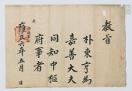 敎旨
朴東亨爲
嘉善大夫
同知中樞
府事者
雍正六年五月 日